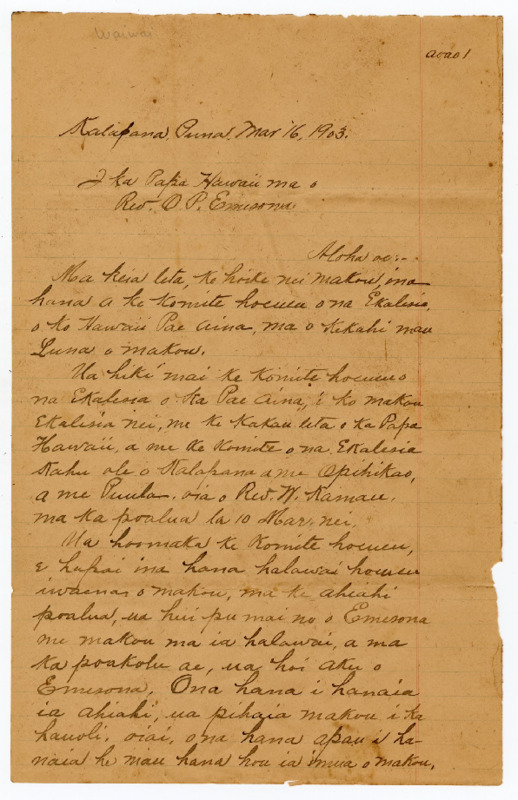 Waiwai
aoao 1
Kalapana Puna Mar 16, 1903.
I ka Papa Hawaii ma o
Rev. O P. Emesona
Aloha oe:-
Ma keia leta, ke hoike nei makou, ina
hana a ke Komite hoeueu o na Ekalesia,
o ko Hawaii Pae Aina, ma o kekahi mau
Luna o makou.
Ua hiki mai ke Komite hoeueu o
na Ekalesia o ka Pae Aina, i ko makou
Ekalesia nei, me ke Kakau leta o ka Papa
Hawaii, a me ke Komite o na Ekalesia
Kahu ole o Kalapana a me Opihikao,
a me Puula. oia o Rev. W. Kamau,
ma ka poalua la 10 Mar. nei.
Ua hoomaka ke Komite hoeueu,
e hapai ina hana halawai hoeueu
iwaena o makou, ma ke ahiahi
poalua, ua hui pu mai no o Emesona
me makou ma ia halawai, a ma
ka poakolu ae, ua hoi aku o
Emesona. Ona hana i hanaia
ia ahiahi, ua pihaia makou i ka
hauoli. oiai, o na hana apau i ha-
naia he mau hana hou ia imua o makou.